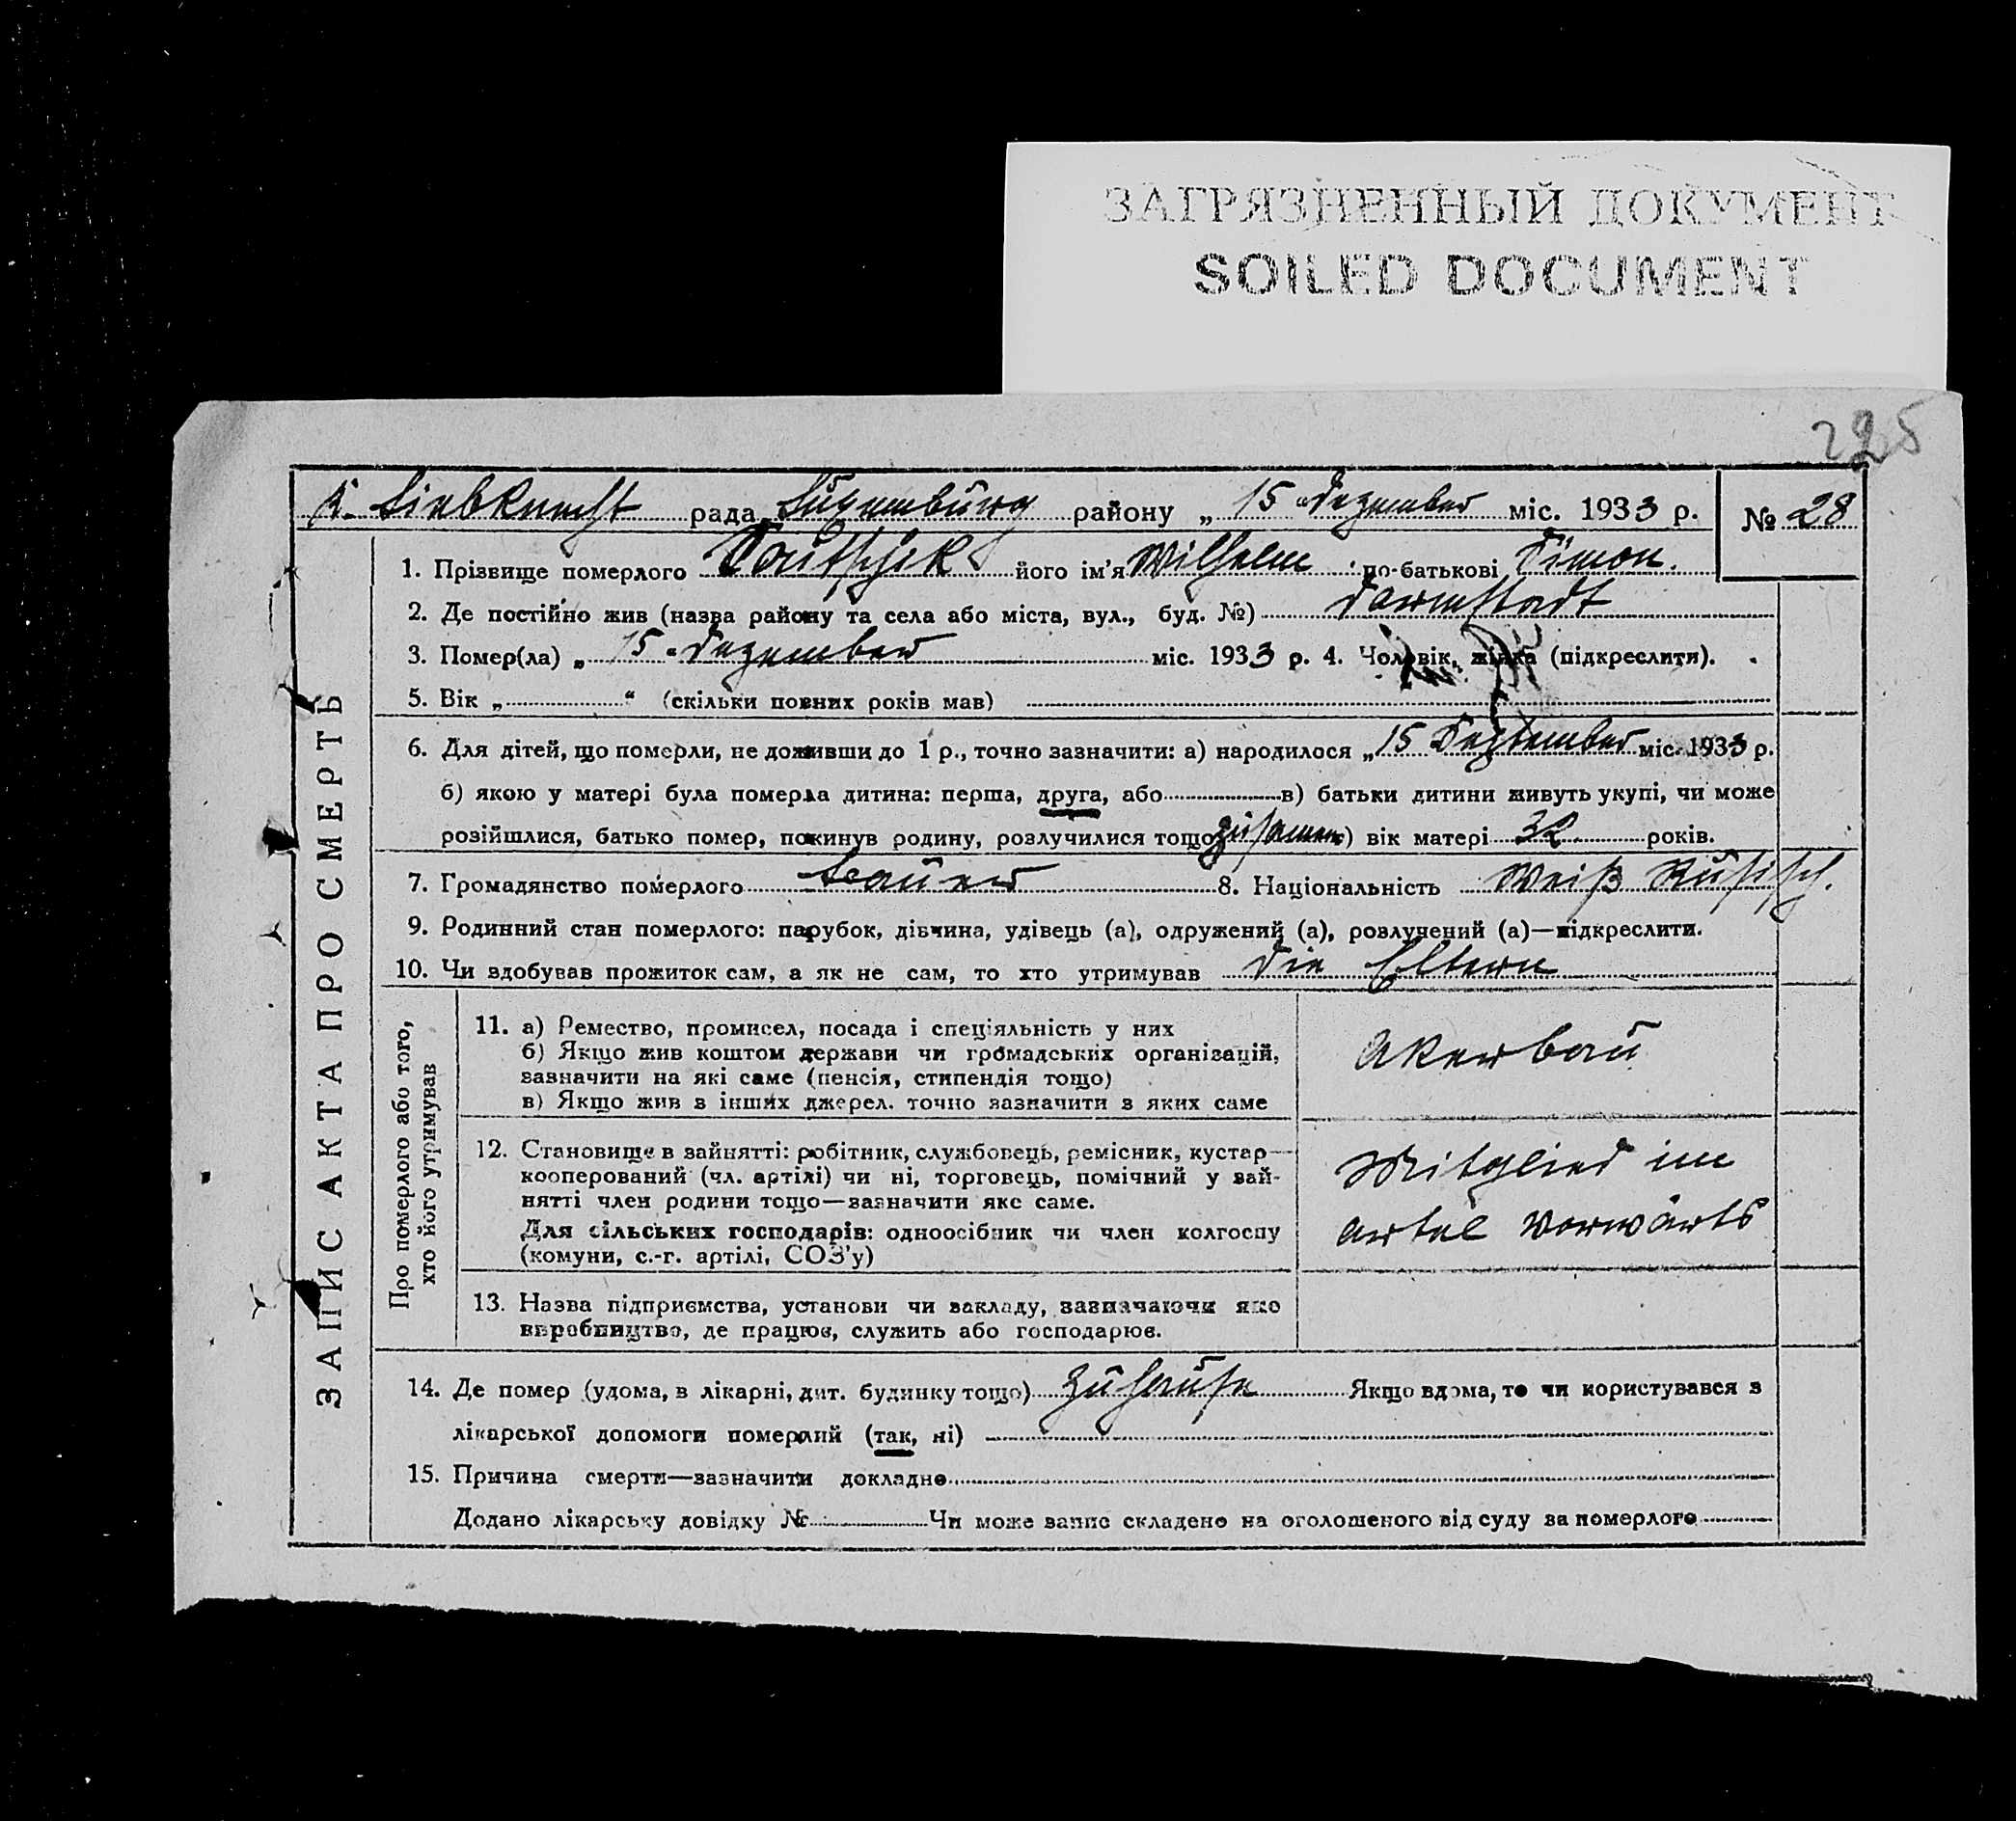 ЗАГРЯЗНЕННЫЙ ДОКУМЕНТ
SOILED DOCUMENT
225
K. Liebknecht рада Luxemburg району „15 “ Dezember міс. 1933 р. № 28
1. Прізвище померлого його ім'я Wilhelm по-батькові Simon.
2. Де постійно жив (назва району та села або міста, вул., буд. №) Darmstadt
3. Помер(ла) „15“ Dezember міс. 1933 р. 4. Чоловік, жінка (підкреслити).
5. Вік „ “ (скільки повних років мав)
6. Для дітей, що померли, не доживши до 1 р., точно зазначити: а) народилося „15 September міс. 1933 р.
б) якою у матері була померла дитина: перша, друга, або в) батьки дитини живуть укупі, чи може
розійшлися, батько помер, покинув родину, розлучилися тощо zusamen ) вік матері 32 років.
7. Громадянство померлого Bauer 8. Національність Weiß Rusisch.
9. Родинний стан померлого: парубок, дівчина, удівець (а), одружений (а), розлучений (а)—підкреслити.
10. Чи здобував прожиток сам, а як не сам, то хто утримував die Eltern
ЗАПИС АКТА ПРО СМЕРТЬ
Про померлого або того,
хто його утримував
11. а) Ремество, промисел, посада і спеціяльність у них
б) Якщо жив коштом держави чи громадських організацій,
зазначити на які саме (пенсія, стипендія тощо)
в) Якщо жив з інших джерел. точно зазначити з яких саме
Akerbau
12. Становище в зайнятті: робітник, службовець, ремісник, кустар—
кооперований (чл. артілі) чи ні, торговець, помічний у зай-
нятті член родини тощо—зазначити яке саме.
Для сільських господарів: одноосібник чи член колгоспу
(комуни, с.-г. артілі, СОЗ'у)
Mitglied im
Artel Vorwärts
13. Назва підприємства, установи чи закладу, зазначаючи яке
виробництво, де працює, служить або господарює.
14. Де помер (удома, в лікарні, дит. будинку тощо) zu Hause Якщо вдома, то чи користувався з
лікарської допомоги померлий (так, ні)
15. Причина смерти—зазначити докладно
Додано лікарську довідку № Чи може запис складено на оголошеного від суду за померлого